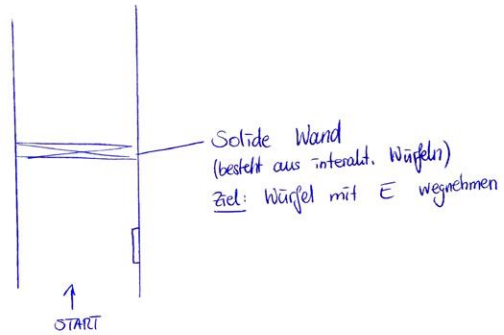 Solide Wand
(besteht aus interakt. Würfeln)
Ziel: Würfel mit E wegnehmen
START